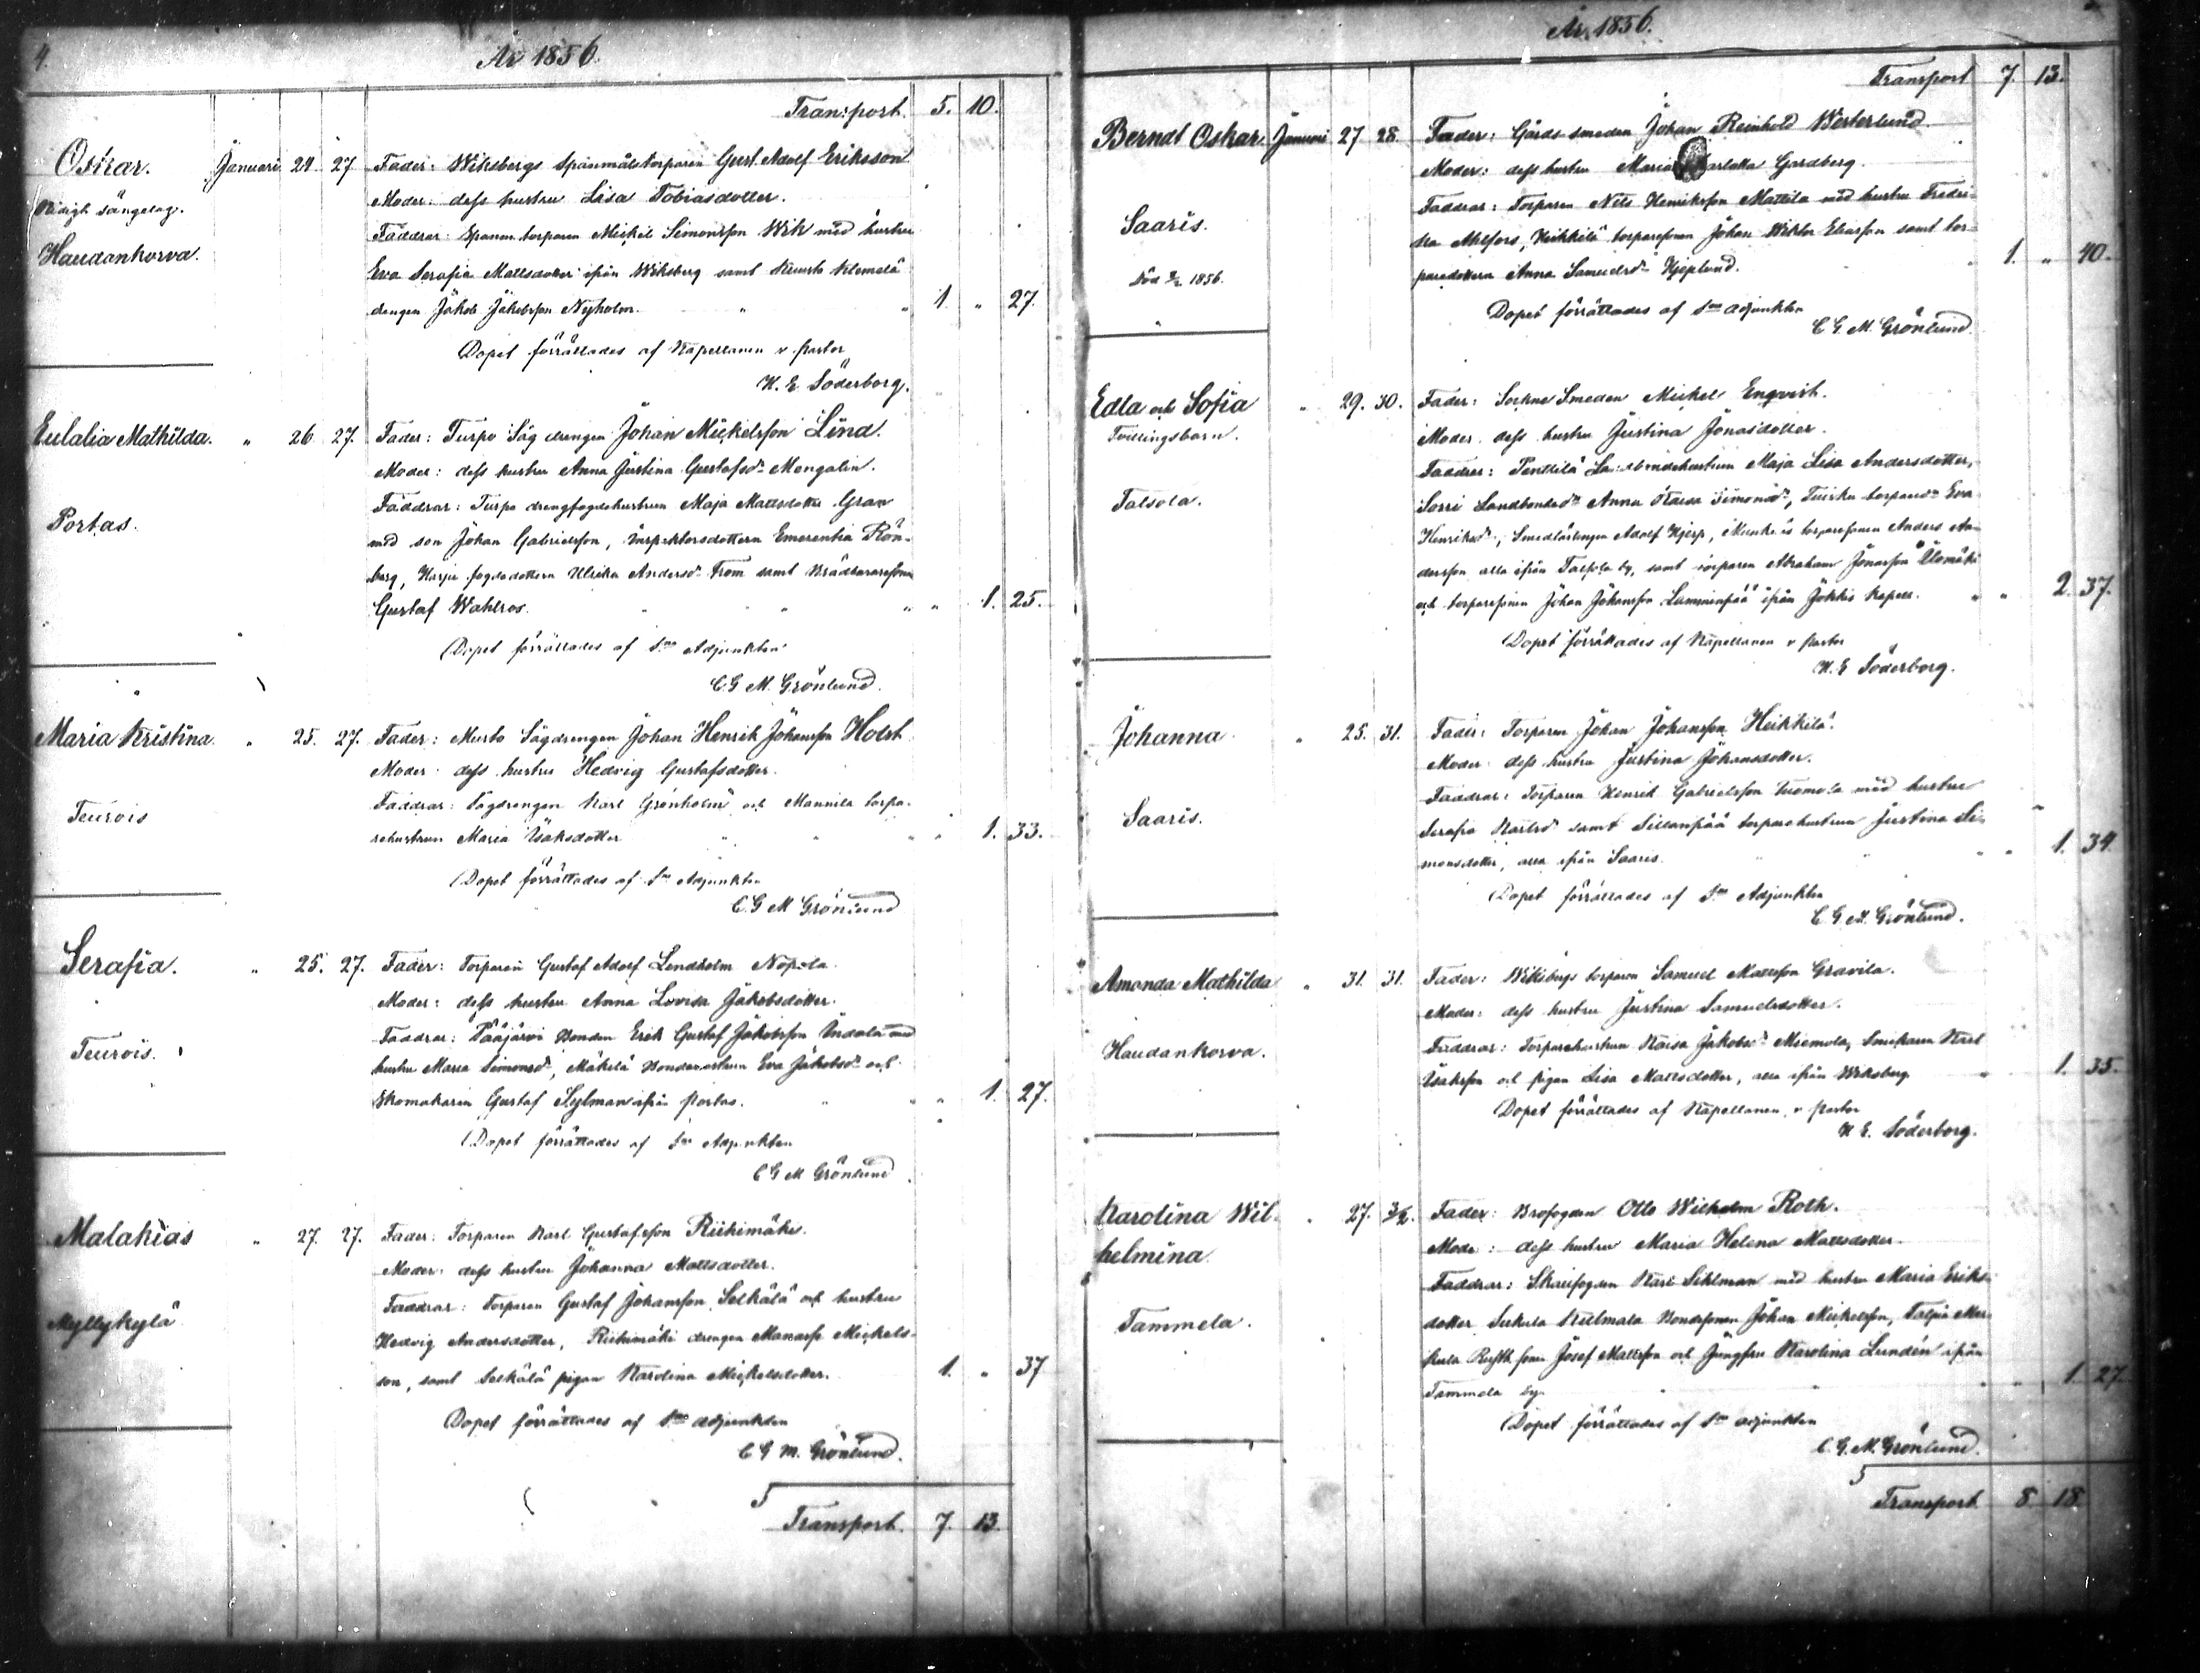 4.
År 1856.
Transport. 5. 10.
Oskar. Januari 24. 27. Fader: Wiksbergs Spånmålstorparen Gust. Adolf Eriksson
Moder: dess hustru Lisa Tobiasdotter.
sängelag.
Faddrar: torparen Mickel Simonsson Wik med hustru
Haudankorva.
Eva Serafia Mattsdotter ifrån Wiksberg samt Klemelä
drengen Jakob Jakobsson Nyholm. " " 1. " 27.
Dopet förrättades af Kapellanen v. Pastor
K. E. Söderborg.
Eulalia Mathilda. " 26. 27. Fader: Turpo Sågdrengen Johan Mickelsson Lind.
Moder: dess hustru Anna Justina Gustafsdr Mongalin.
Faddrar: Turpo drengfogdehustrun Maja Mattsdotter Gran
Portas.
med son Johan Gabrielsson, Inspektorsdottern Emerentia Rön-
berg, Harju fogdedottern Ulrika Andersdr From samt
Gustaf Wahlros. " " " " 1. 25.
Dopet förrättades af Sns Adjunkten
C. G. M. Grönlund.
Maria Kristina. " 25. 27. Fader: Musto Sågdrengen Johan Henrik Johansson Holst.
Moder: dess hustru Hedvig Gustafsdotter.
Faddrar: Sågdrengen Karl Grönholm och Mannila torpa-
Teurois
rehustrun Maria Isaksdotter " " " 1. 33.
Dopet förrättades af Sns Adjunkten
C. G. M. Grönlund
Serafia. " 25. 27. Fader: Torparen Gustaf Adolf Lindholm Nopola.
Moder: dess hustru Anna Lovisa Jakobsdotter.
Faddrar: Pääjärvi Bonden Erik Gustaf Jakobsson Indola med
Teurois.
hustru Maria Simonsdr, Mäkilä Bondehustrun Eva Jakobsdr och
Skomakaren Gustaf Sylman ifrån Portas. " " " 1. 27.
Dopet förrättades af Sns Adjunkten
C. G. M. Grönlund
Malakias " 27. 27. Fader: Torparen Karl Gustafsson Riikimäki.
Moder: dess hustru Johanna Mattsdotter.
Faddrar: Torparen Gustaf Johansson Selkälä och hustru
Myllykylä
Hedvig Andersdotter, Riikimäki drengen Manasse Mickels-
son, samt Selkälä pigan Karolina Mickelsdotter. 1. " 37
Dopet förrättades af Sns adjunkten
C. G. M. Grönlund.
Transport. 7. 13.
År 1856.
Transport 7. 13.
Berndt Oskar. Januari 27 28. Fader: Gårds smeden Johan Reinhold Westerlund
Moder: dess hustru Maria Gardberg.
Faddrar: Torparen Nils Henriksson Mattila med hustru Fredri-
Saaris.
ka Ahlfors, Heikkilä torparesonen Johan Wiktor Eliasson samt tor-
paredottern Anna Samuelsdr Hjeplund. " 1. " 40.
Död 9/2 1856.
Dopet förrättades af Sns adjunkten
C. G. M. Grönlund
Edla och Sofia " 29. 30. Fader: Sockne Smeden Mickel Enqvist.
Tvillingsbarn.
Moder: dess hustru Justina Jonasdotter.
Faddrar: Penttilä Landbondehustrun Maja Lisa Andersdotter,
Talsola.
Sorri Landbondedr Anna Kaisa Simonsdr, Tuisku torparedr Eva
Henriksdr, Smedlärlingen Adolf Hjerp, torparesonen Anders An-
dersson alla ifrån Talsola by, samt torparen Abraham Jonasson Ülomäki
och torparesonen Johan Johansson Lamminpää ifrån Jokkis kapell. " " 2. 37.
Dopet förrättades af Kapellanen v Pastor
K. E. Söderborg.
Johanna " 25. 31. Fader: Torparen Johan Johansson Heikkilä.
Moder: dess hustru Justina Johansdotter.
Faddrar: Torparen Henrik Gabrielsson Tuomola med hustru
Saaris.
Serafia Karlsdr samt Sillanpää torparehustrun Justina Si-
monsdotter, alla ifrån Saaris. " " 1. 34.
Dopet förrättades af Sns Adjunkten
C. G. M. Grönlund.
Amanda Mathilda " 31. 31. Fader: Wiksbergs torparen Samuel Mattsson Gravila.
Moder: dess hustru Justina Samuelsdotter.
Haudankorva.
Faddrar: Torparehustrun Kaisa Jakobsdr Miemola, Karl
Isaksson och pigan Lisa Mattsdotter, alla ifrån Wiksberg " 1. 35.
Dopet förrättades af Kapellanen v Pastor
K. E. Söderborg.
Karolina Wil- " 27. 3/2. Fader: Brofogden Otto Wilhelm Roth.
helmina.
Moder: dess hustru Maria Helena Mattsdotter.
Faddrar: Skallfogden Karl Sihlman med hustru Maria Eriks-
Tammela.
dotter Sukula Kulmala Bondesonen Johan Mickelsson, Talpia
Rusthsonen Josef Mattsson och Jungfru Karolina Lundén ifrån
Tammela by. " " 1. 27.
Dopet förrättades af Sns adjunkten
C. G. M. Grönlund.
Transport 8. 18.